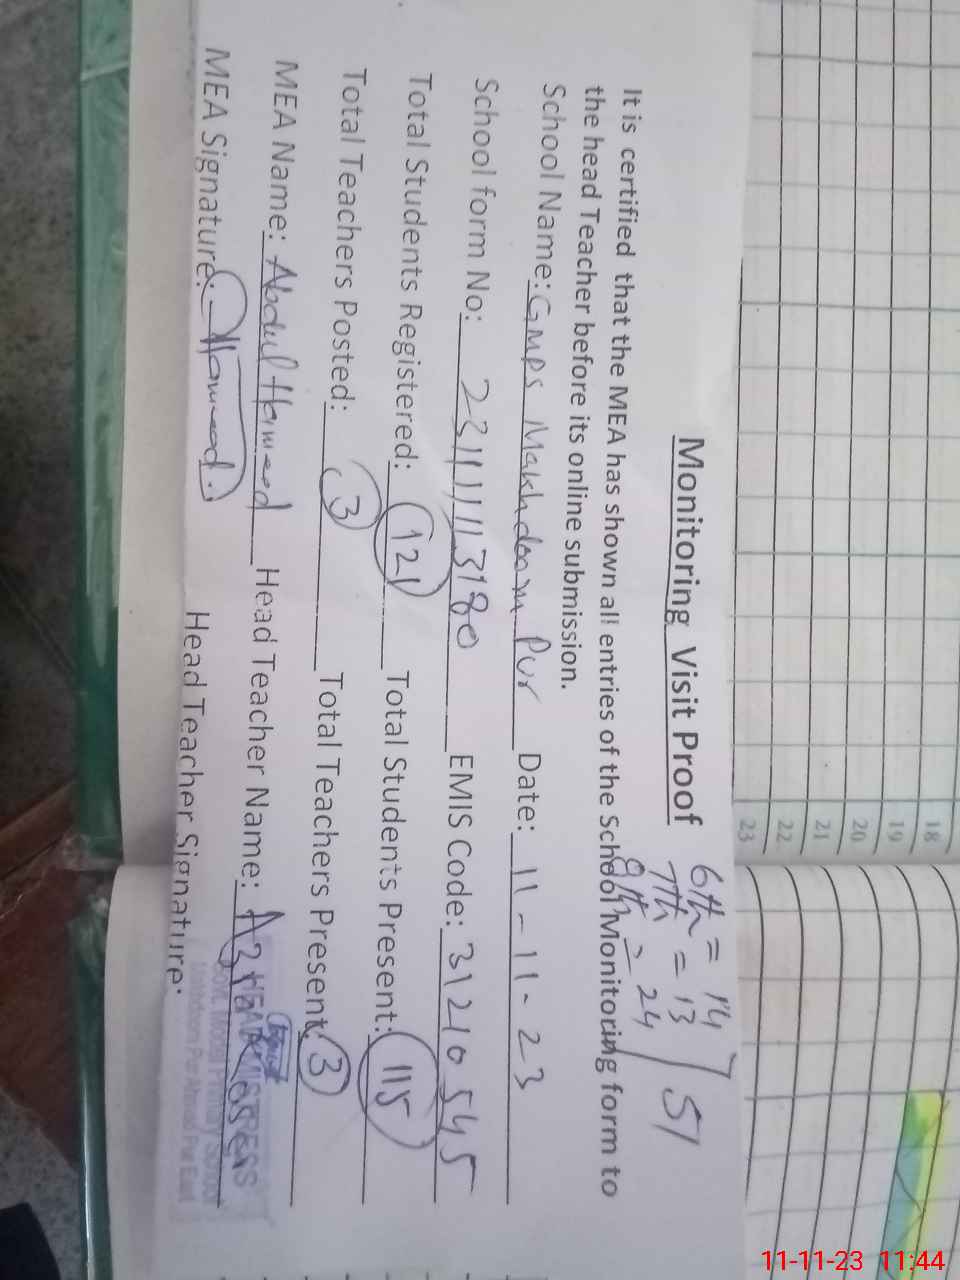 Monitoring Visit Proof
6th = 14
7th = 13
8th = 24
51
It is certified that the MEA has shown all entries of the School Monitoring form to
the head Teacher before its online submission.
School Name: GMPS Makhdoom Pur Date: 11-11-23
School form No: 23111113180 EMIS Code: 31210545
Total Students Registered: 121 Total Students Present: 115
Total Teachers Posted: 3 Total Teachers Present: 3
MEA Name: Abdul Hameed Head Teacher Name:
MEA Signature: Hameed Head Teacher Signature:
HEADMISTRESS
Govt. Model Primary School
18
19
20
21
22
23
11-11-23 11:44